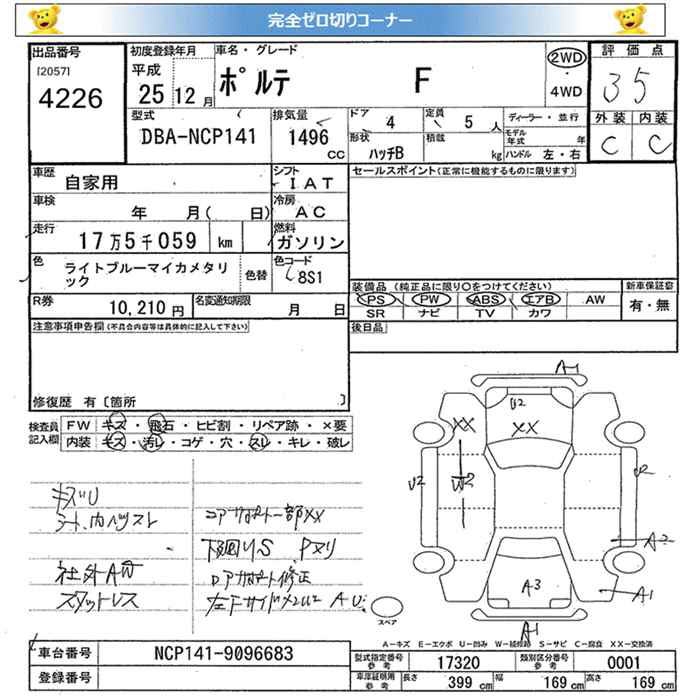 完全ゼロ切りコーナー
出品番号 初度登録年月 車名・グレード 評価点
[2057] 平成 ポルテ F 2WD
4226 25 12月 4WD 35
型式 排気量 ドア 4 定員 5人 ディーラー・並行 外装 内装
DBA-NCP141 1496 CC 形状 ハッチB 積載 kg モデル年式 年 ハンドル 左・右 C C
車歴 自家用 シフト IAT セールスポイント(正常に機能するものに限ります)
車検 年 月( 日) 冷房 AC
走行 17万5千059 km 燃料 ガソリン
色 ライトブルーマイカメタリック 色替 色コード 8S1
装備品 (純正品に限り○をつけてください) 新車保証書
R券 10,210円 名変通知期限 月 日 PS PW ABS エアB AW 有・無
SR ナビ TV カワ
注意事項申告欄(不具合内容等は具体的に記入して下さい) 後日品
修復歴 有〔箇所 〕
検査員記入欄 FW キズ・飛石・ヒビ割・リペア跡・×要
内装 キズ・汚れ・コゲ・穴・スレ・キレ・破レ
A-1
U2
XX XX
U2 W2 U2
キズU
コアサポート一部XX
A-2
下回りS Pヌリ
社外AW A3 A-1
スタッドレス スペア
A-1
A-キズ E-エクボ U-凹み W-補修跡 S-サビ C-腐食 XX-交換済
車台番号 NCP141-9096683
型式指定番号 参考 17320 類別区分番号 参考 0001
登録番号
車庫証明用 参考 長さ 399 cm 幅 169 cm 高さ 169 cm